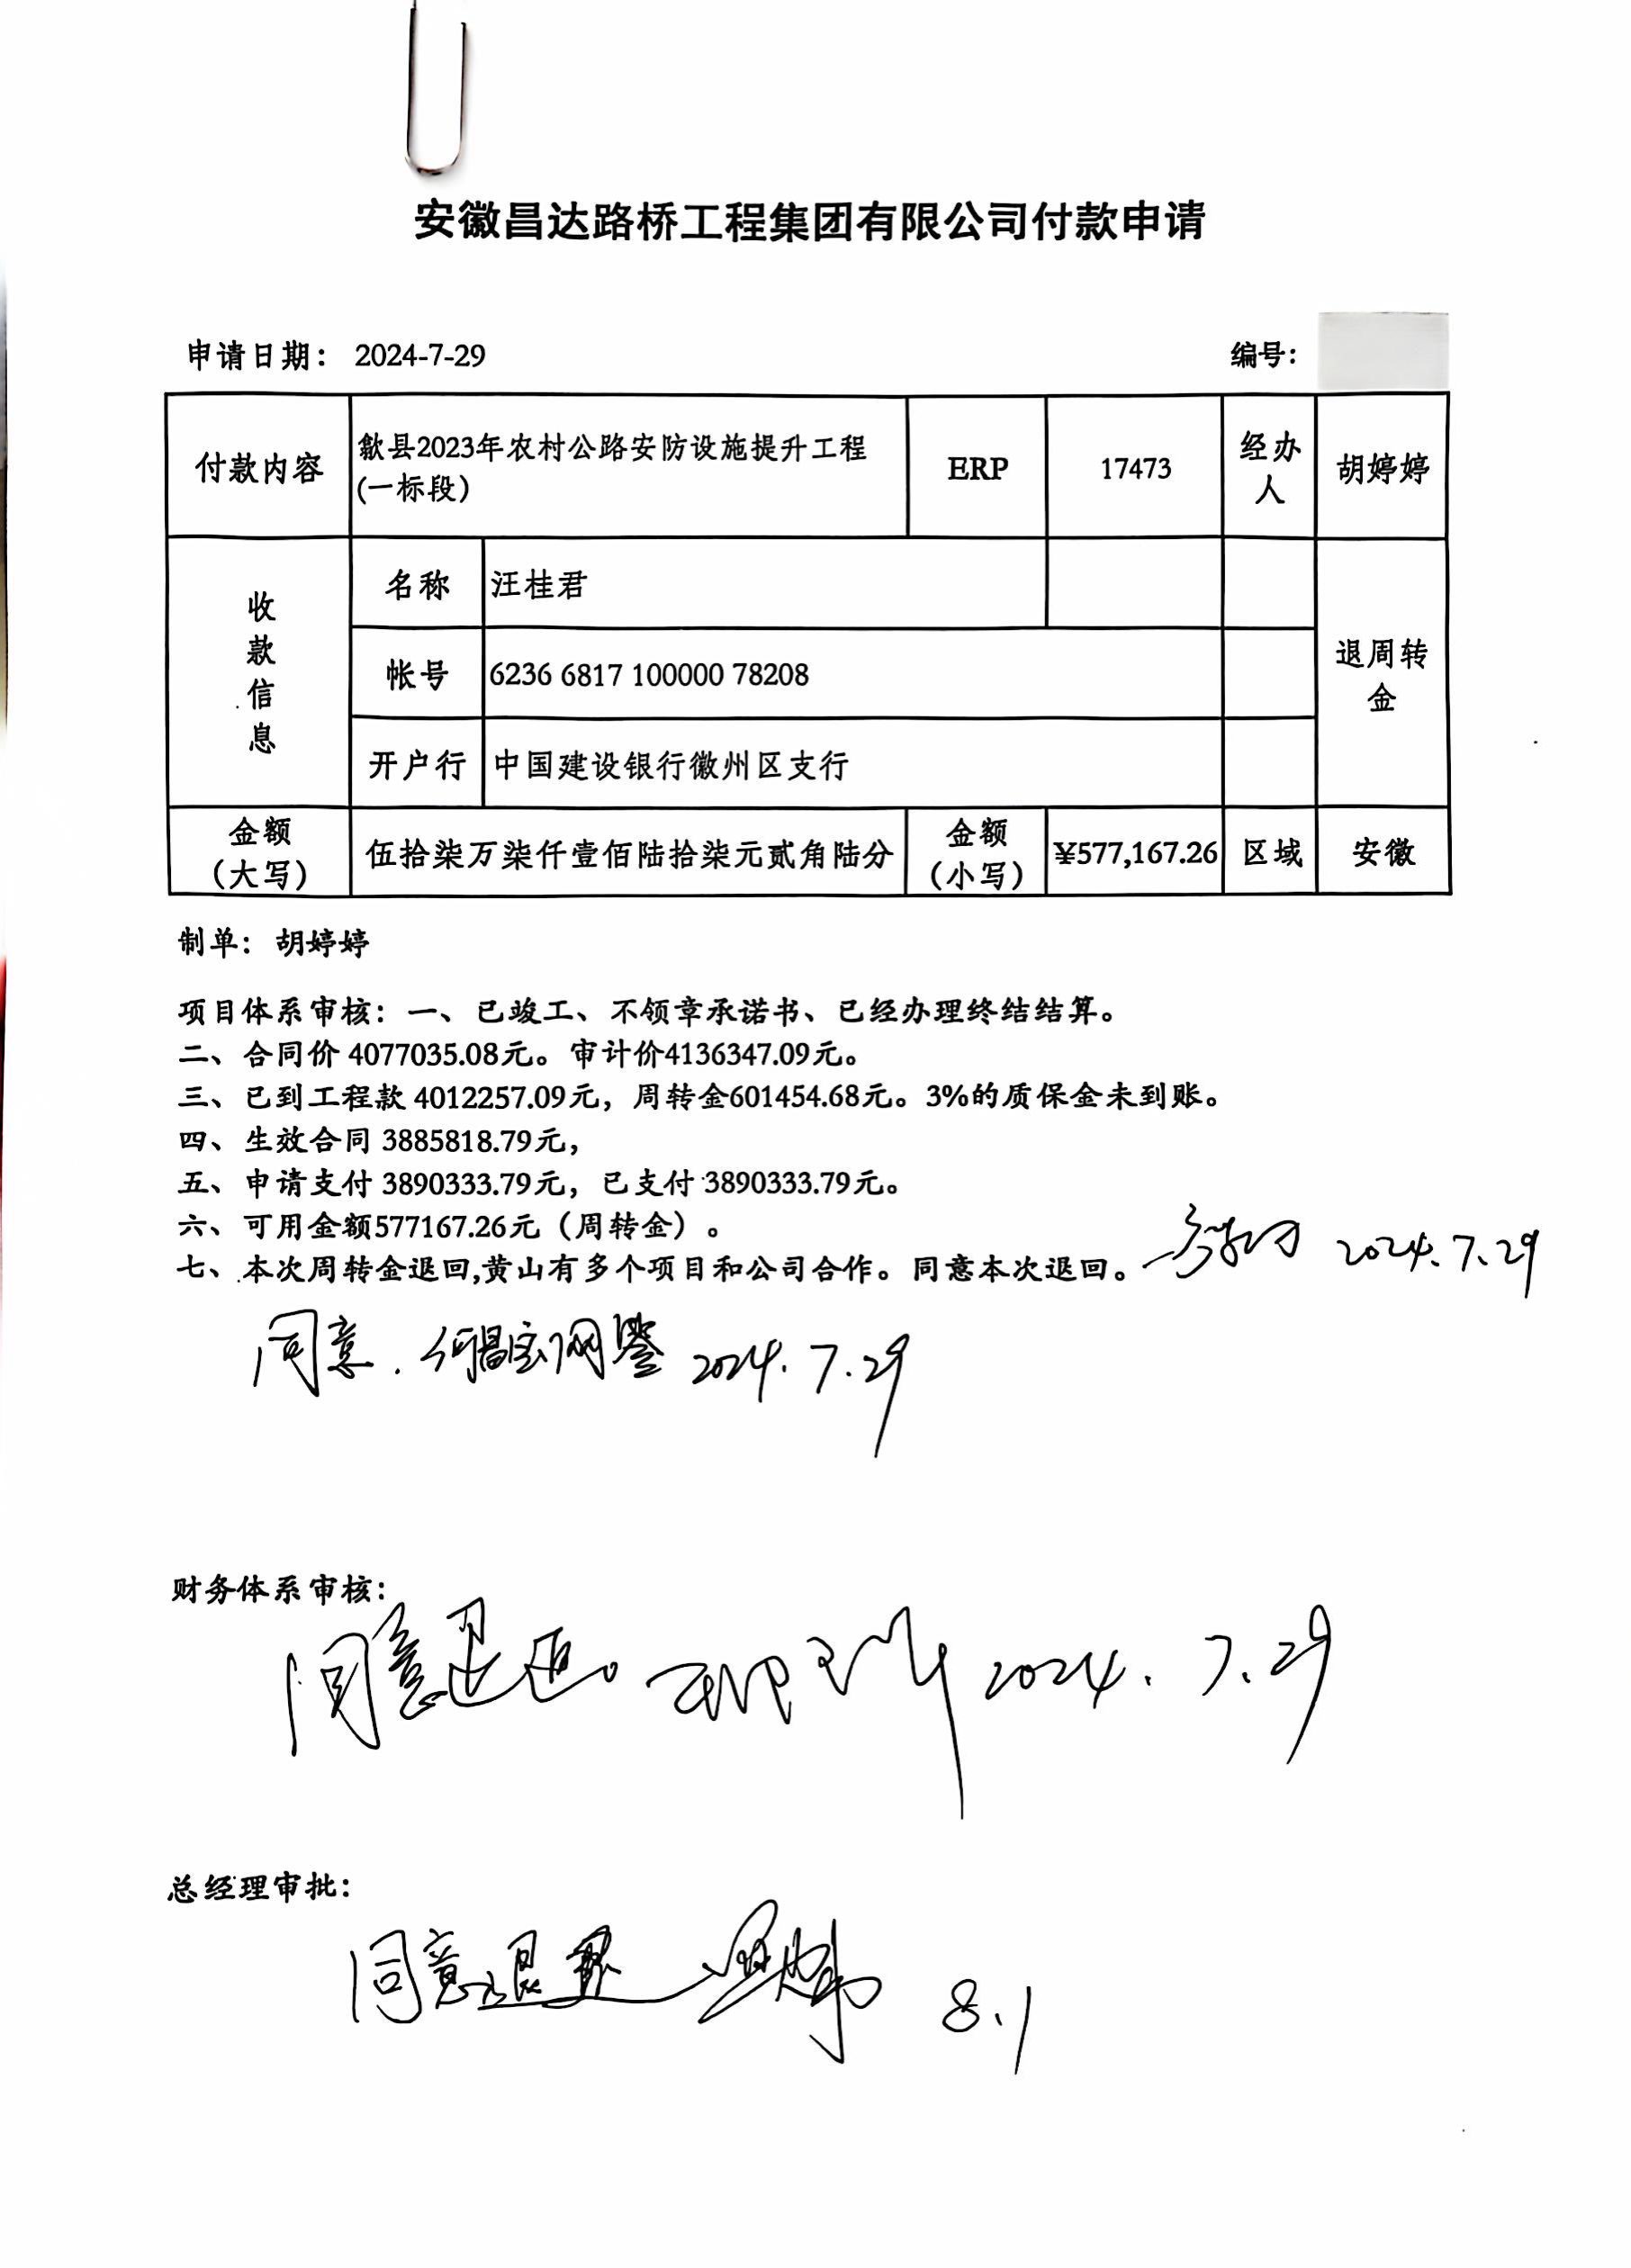 安徽昌达路桥工程集团有限公司付款申请
申请日期： 2024-7-29 编号：
付款内容 歙县2023年农村公路安防设施提升工程(一标段) ERP 17473 经办人 胡婷婷
收款信息 名称 汪桂君 退周转金
帐号 6236 6817 100000 78208
开户行 中国建设银行徽州区支行
金额（大写） 伍拾柒万柒仟壹佰陆拾柒元贰角陆分 金额（小写） ¥577,167.26 区域 安徽
制单： 胡婷婷
项目体系审核：一、已竣工、不领章承诺书、已经办理终结结算。
二、合同价 4077035.08元。审计价4136347.09元。
三、已到工程款 4012257.09元，周转金601454.68元。3%的质保金未到账。
四、生效合同 3885818.79元，
五、申请支付 3890333.79元，已支付 3890333.79元。
六、可用金额577167.26元（周转金）。
七、本次周转金退回,黄山有多个项目和公司合作。同意本次退回。 2024.7.29
同意. 何昌宝网签 2024.7.29
财务体系审核：
同意退回。 2024.7.29
总经理审批：
同意退 8.1